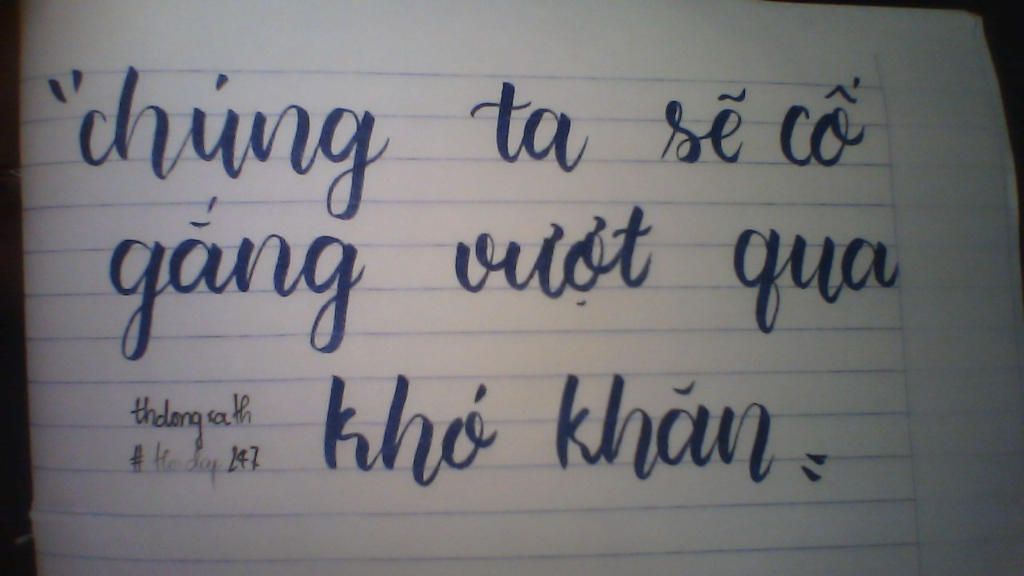 "chúng ta sẽ cố
gắng vượt qua
khó khăn."
247